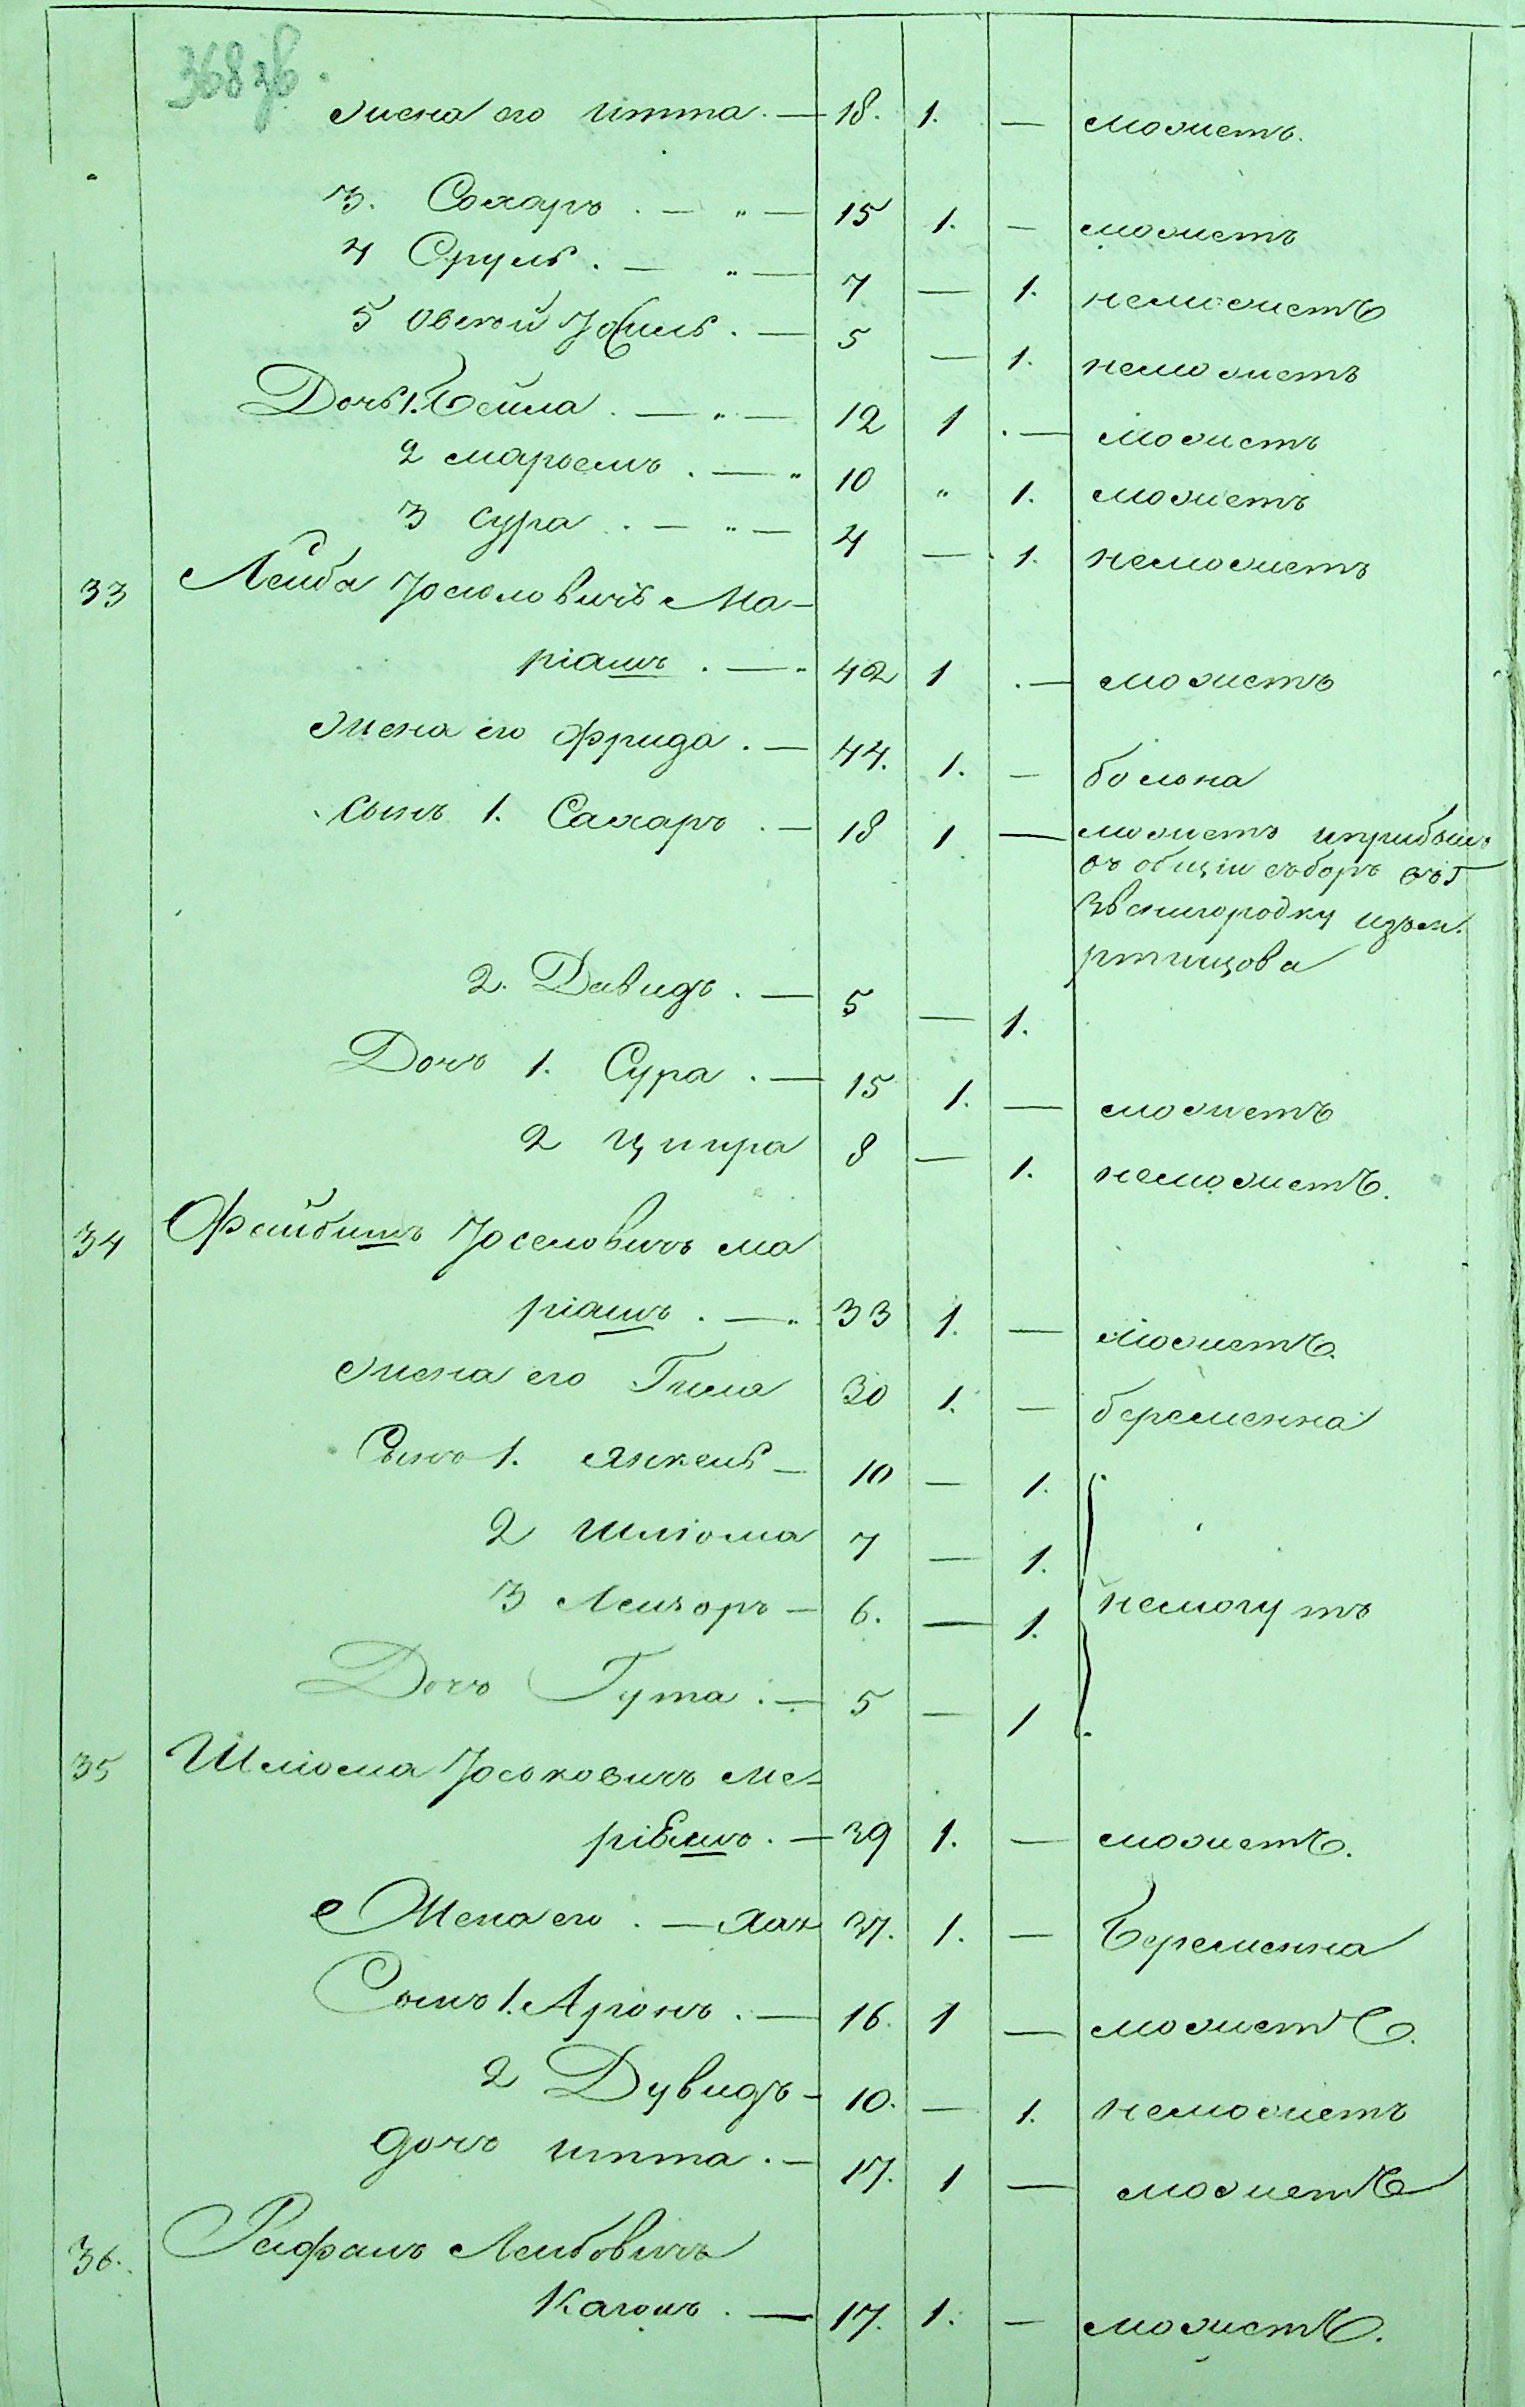 368 зв.
жена его Итта. — 18. 1. — можетъ.
3. Сахаръ. — „ — 15 1. — можетъ
4 Сруль. — „ — 7 — 1. неможетъ
5 Овсѣй Хаиль. — 5 — 1. неможетъ
Дочь 1. Бейла. — „ — 12 1. — можетъ
2 Марьемъ. — „ 10 „ 1. можетъ
3 Сура. — „ — 4 — 1. неможетъ
33 Лейба Іоселовичъ Ма-
ріашъ. — „ 42 1. — можетъ
жена его Фрида. — 44. 1. — больна
Сынъ 1. Сахаръ. — 18 1 — можетъ и прибылъ
въ общій съборъ въ г
Звенигородку изъ м.
Ртищова
2. Давидъ. — 5 — 1.
Дочъ 1. Сура. — 15 1. — можетъ
2 Ципра 8 — 1. неможетъ.
34 Файбишъ Іоселовичъ Ма
ріашъ. — „ 33 1. — можетъ.
жена его Гита 30 1. — беременна
Сынъ 1. Янкель — 10 — 1.
2 Шліома 7 — 1.
3 Лейзоръ — 6. — 1. немогутъ
Дочъ Гута. — 5 — 1
35 Шліома Іоськовичъ Ме-
ріешъ. — 39 1. — можетъ.
Жена его. — Хая 37. 1. — Беременна
Сынъ 1. Аронъ. — 16. 1 — можетъ.
2 Дувидъ — 10. — 1. неможетъ
дочъ Итта. — 17. 1 — можетъ
36. Рафаилъ Лейбовичъ
Каганъ. — 17. 1. — можетъ.